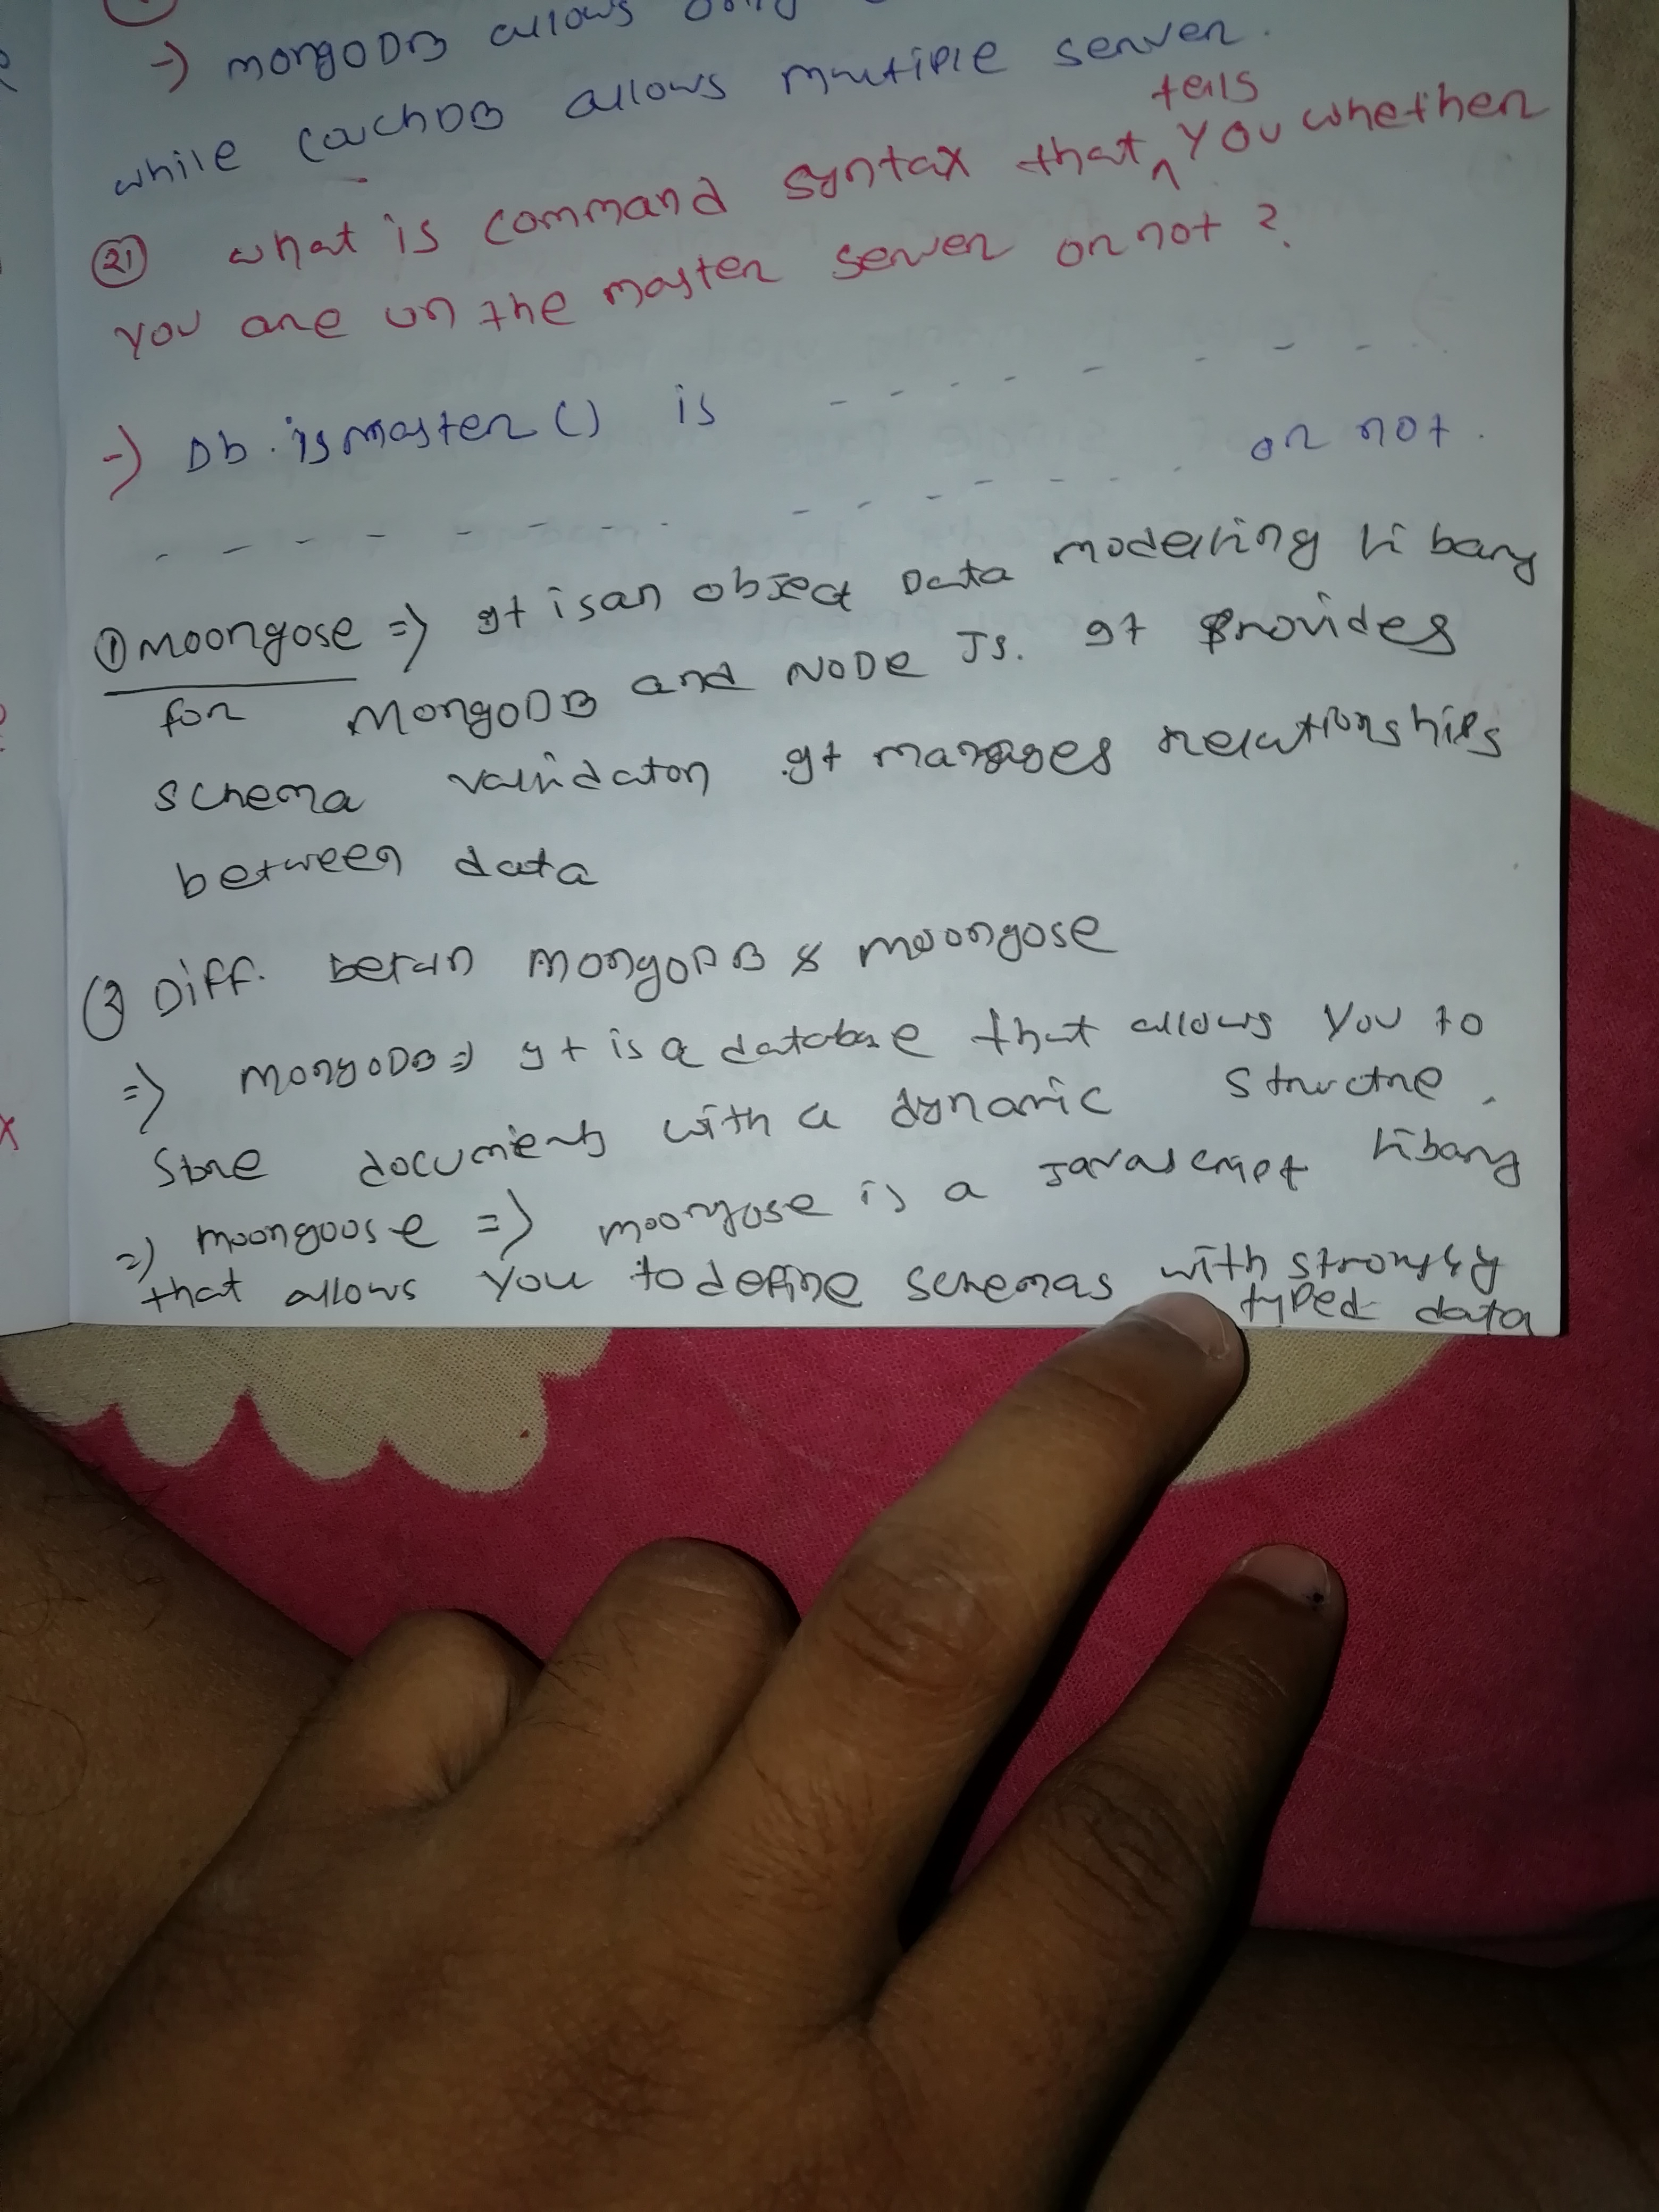 -) mongoDB allows only
while CouchDB allows multiple server.
tells
(21) what is command syntax that ^ you whether
you are on the master server or not ?
-) Db.isMaster() is - - - - - - - -
- - - - - - - - - - - - - or not.
① Moongose => It is an object Data modelling libary
for MongoDB and NODE JS. It Provides
schema validaton .It manages relationships
between data
② Diff. betwn MongoDB & moongose
=> MongoDB => It is a database that allows you to
Store documents with a dynamic structure.
=) moongoose => moongose is a Javascript libary
that allows you to define schemas with strongly
typed data